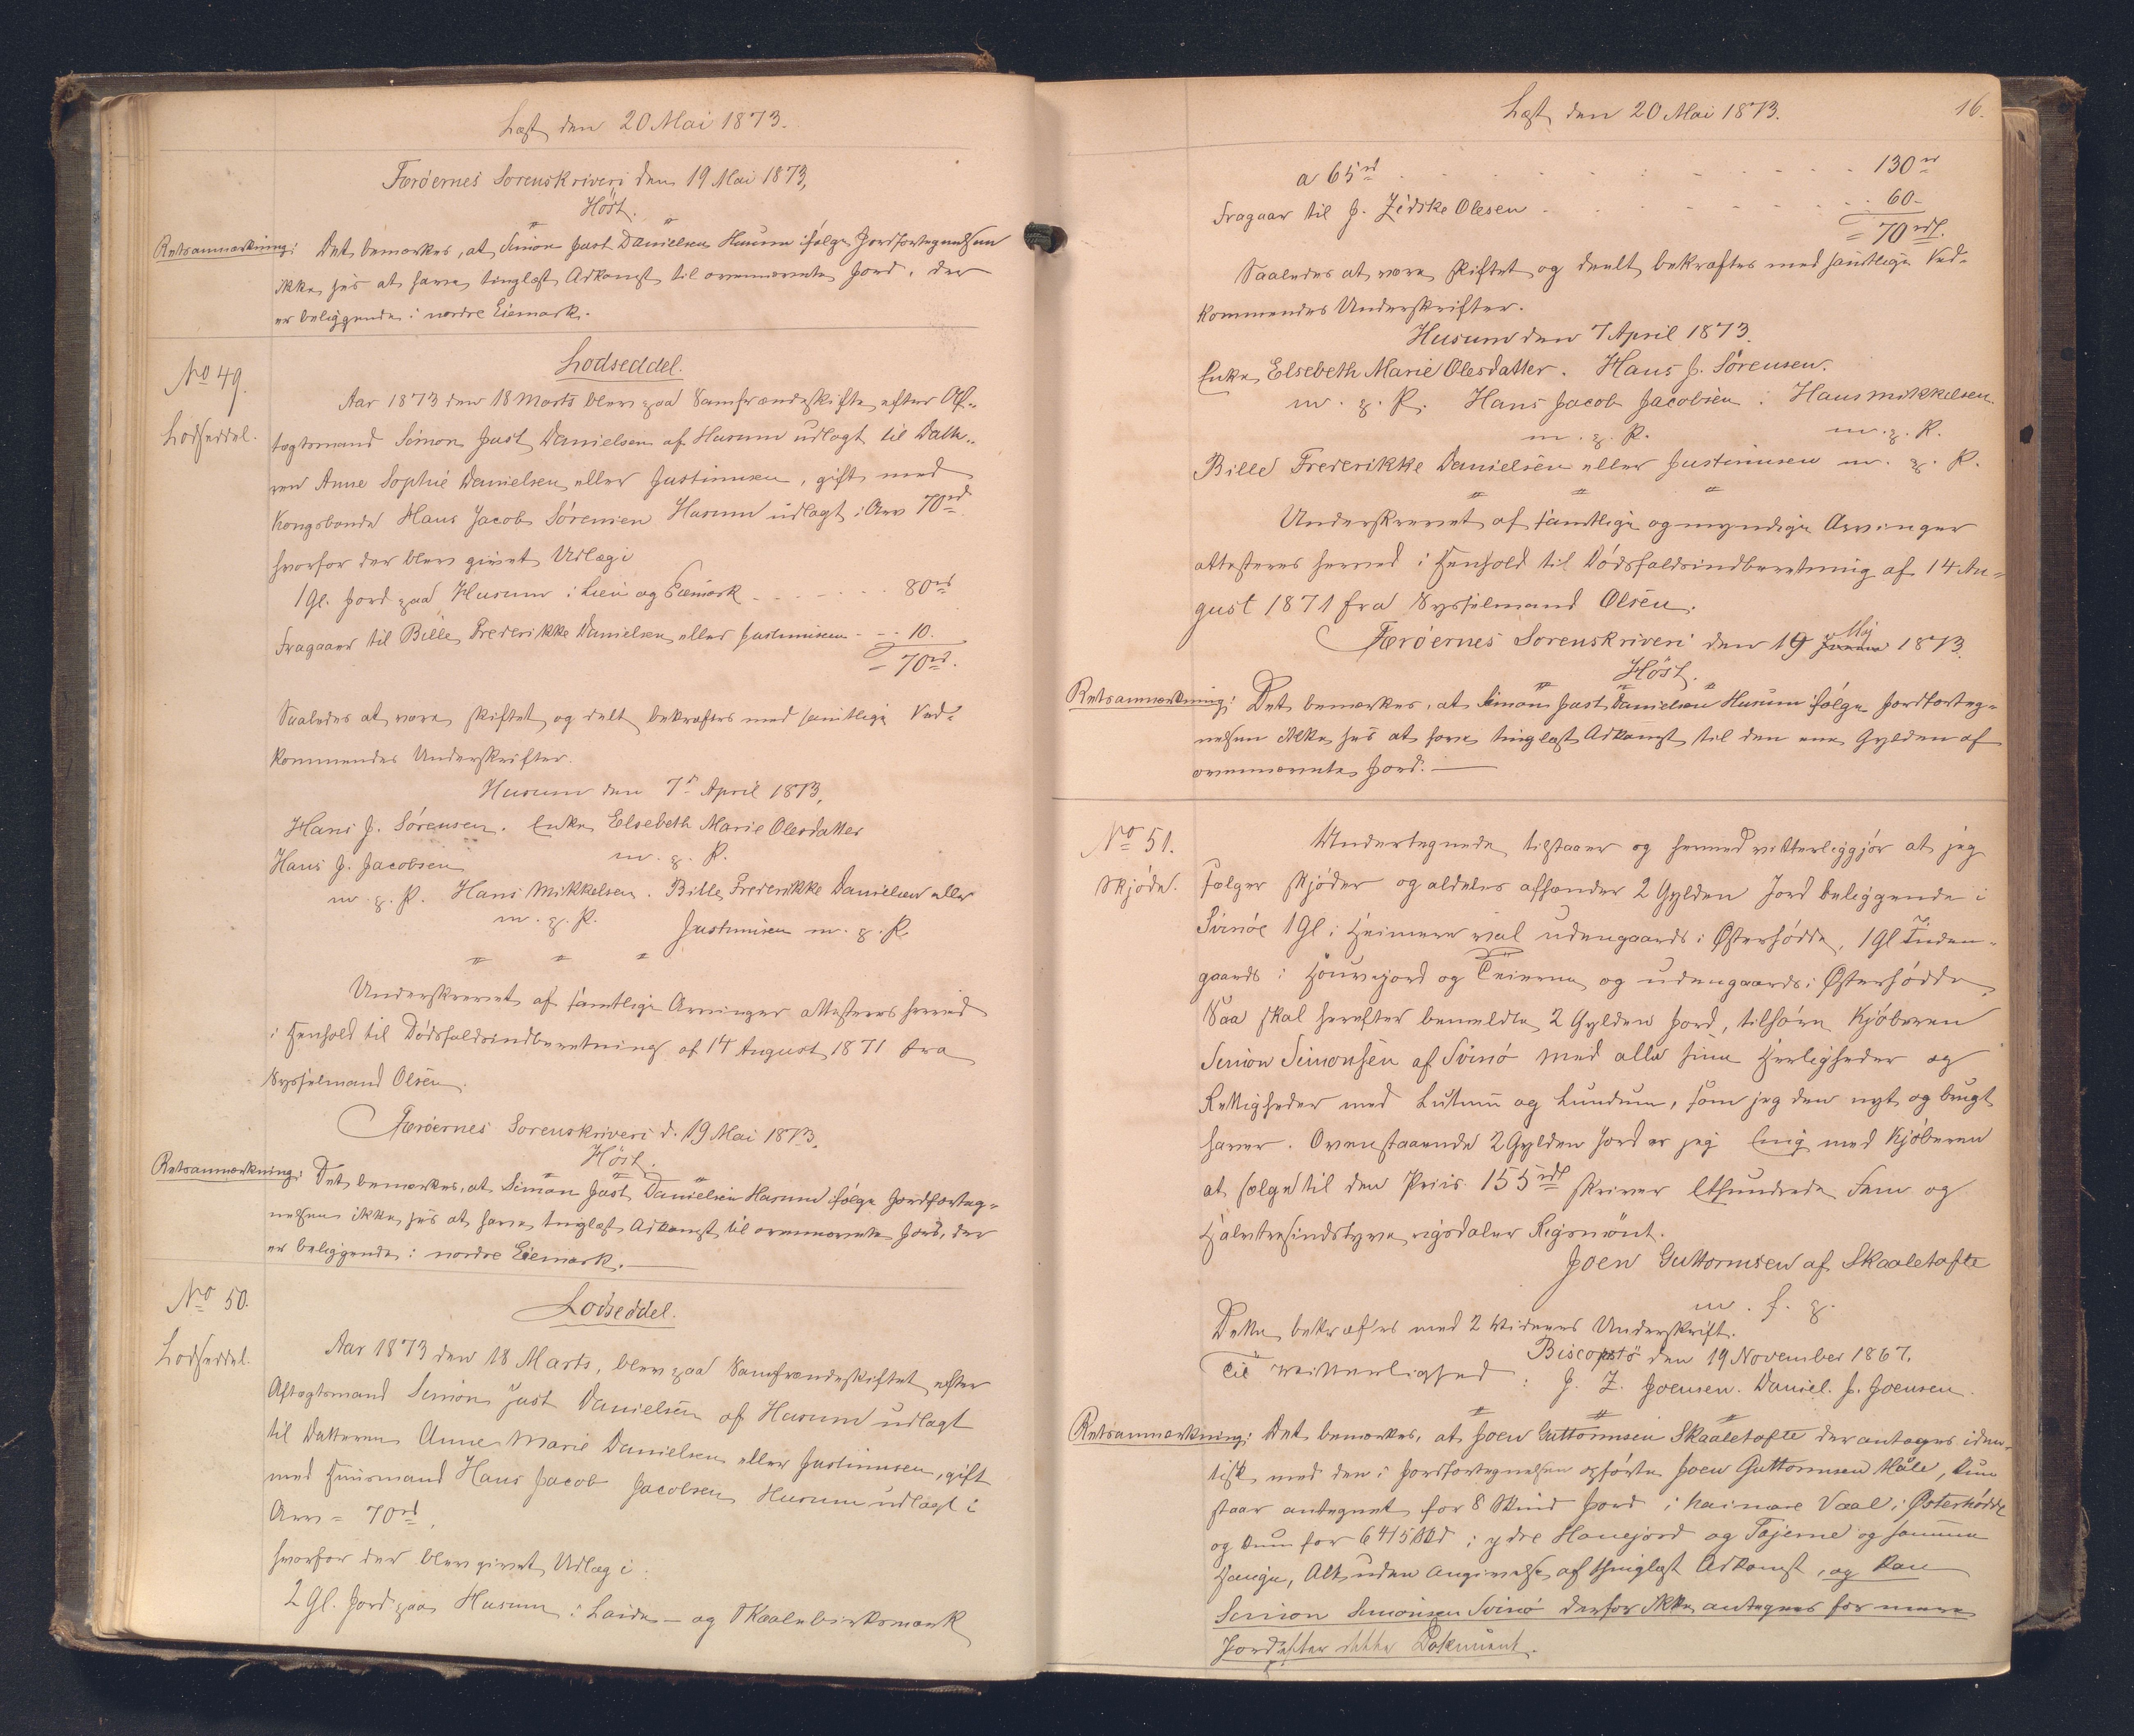 Læst den 20 Mai 1873.
Færöernes Sorenskriveri den 19 Mai 1873,
Höst.
Retsanmærkning: Det bemærkes, at Simon Just Danielsen Husum ifølge Jordfortegnelsen
ikke ses at have tinglæst Adkomst til ovennævnte Jord, der
er beliggende i nordre Eiemark.
No 49.
Lodseddel.
Lodseddel.
Aar 1873 den 18 Marts blev paa Samfrændeskifte efter Af-
tægtsmand Simon Just Danielsen af Husum udlagt til Datte-
ren Anne Sophie Danielsen eller Justinusen, gift med
Kongsbonde Hans Jacob Sörensen Husum udlagt i Arv 70rd
hvorfor der blev givet Udlæg i
1 Gl. Jord paa Husum i Lien og Eiemark - - - - - - - 80rd
Fragaaer til Bille Frederikke Danielsen eller Justinusen - - - 10.
= 70rd.
Saaledes at være skiftet og delt bekræftes med samtlige Ved-
kommendes Underskrifter.
Husum den 7de April 1873,
Hans J. Sörensen. Enke Elsebeth Marie Olesdatter
Hans J. Jacobsen m. p. P.
m. p. P. Hans Mikkelsen. Bille Frederikke Danielsen eller
m. p. P. Justinusen m. p. P.
Underskrevet af samtlige Arvinger attesteres herved
i Henhold til Dödsfaldsindberetning af 14 August 1871 fra
Sysselmand Olsen.
Færöernes Sorenskriveri d. 19 Mai 1873.
Höst.
Retsanmærkning: Det bemærkes, at Simon Just Danielsen Husum ifølge Jordforteg-
nelsen ikke ses at have tinglæst Adkomst til ovennævnte Jord, der
er beliggende i nordre Eiemark.
No 50.
Lodseddel.
Lodseddel.
Aar 1873 den 18 Marts, blev paa Samfrændeskiftet efter
Aftægtsmand Simon Just Danielsen af Husum udlagt
til Datteren Anne Marie Danielsen eller Justinusen, gift
med Huusmand Hans Jacob Jacobsen Husum udlagt i
Arv = 70rd,
hvorfor der blev givet Udlæg i:
2 Gl. Jord paa Husum i Leide- og Skaalebirksmark
Læst den 20 Mai 1873.
16.
a 65rd - - - - - - - 130rd
Fragaar til J. Zidske Olesen - - - - - - 60-
= 70rdl.
Saaledes at være skiftet og deelt bekræftes med samtlige Ved-
kommendes Underskrifter.
Husum den 7 April 1873.
Enke Elsebeth Marie Olesdatter. Hans J. Sörensen.
m. p. P. Hans Jacob Jacobsen : Hans Mikkelsen
m. p. P. m. p. P.
Bille Frederikke Danielsen eller Justinusen m. p. P.
Underskrevet af samtlige og myndige Arvinger
attesteres herved i Henhold til Dödsfaldsindberetning af 14 Au-
gust 1871 fra Sysselmand Olsen.
Færöernes Sorenskriveri den 19 Maj 1873.
Höst.
Retsanmærkning: Det bemærkes, at Simon Just Danielsen Husum ifølge Jordforteg-
nelsen ikke ses at have tinglæst Adkomst til den ene Gylden af
ovennævnte Jord.
No 51.
Skjöde.
Undertegnede tilstaaer og hermed vitterliggjör at jeg
sælger skjöder og aldeles afhænder 2 Gylden Jord beliggende i
Svinöe 1 Gl i Heimere val udengaards i Østerhödde, 1 Gl Inden-
gaards i Houvejord og Teierne og udengaards i Østerhödde
Saa skal herefter bemeldte 2 Gylden Jord, tilhöre Kjöberen
Simon Simonsen af Svinö med alle sine Herligheder og
Rettigheder med Lutum og Lundum, som jeg den nyt og brugt
haver. Ovenstaaende 2 Gylden Jord er jeg Enig med Kjöberen
at sælge til den Priis 155rdl skriver Ethundrede Fem og
Halvtresindstyve rigsdaler Rigsmönt.
Joen Guttormsen af Skaaletofte
m. f. p.
Dette bekræfes med 2 Vidners Underskrift.
Biscopstö den 19 November 1867.
Til Vitterlighed : J. Z. Joensen. Daniel. J. Joensen.
Retsanmærkning: Det bemærkes, at Joen Guttormsen Skaaletofte der antages iden-
tisk med den i Jordfortegnelsen opförte Joen Guttormsen Kåle, kun
staar antegnet for 8 Skind Jord i haimare Vaal i Østerhödde
og kun for 6 415 Skd i ydre Honejord og Tajerne og samme
Hauge, Alt uden Angivelse af thinglæst Adkomst, og kan
Simon Simonsen Svinö derfor ikke antegnes for mere
Jord efter dette Dokument.